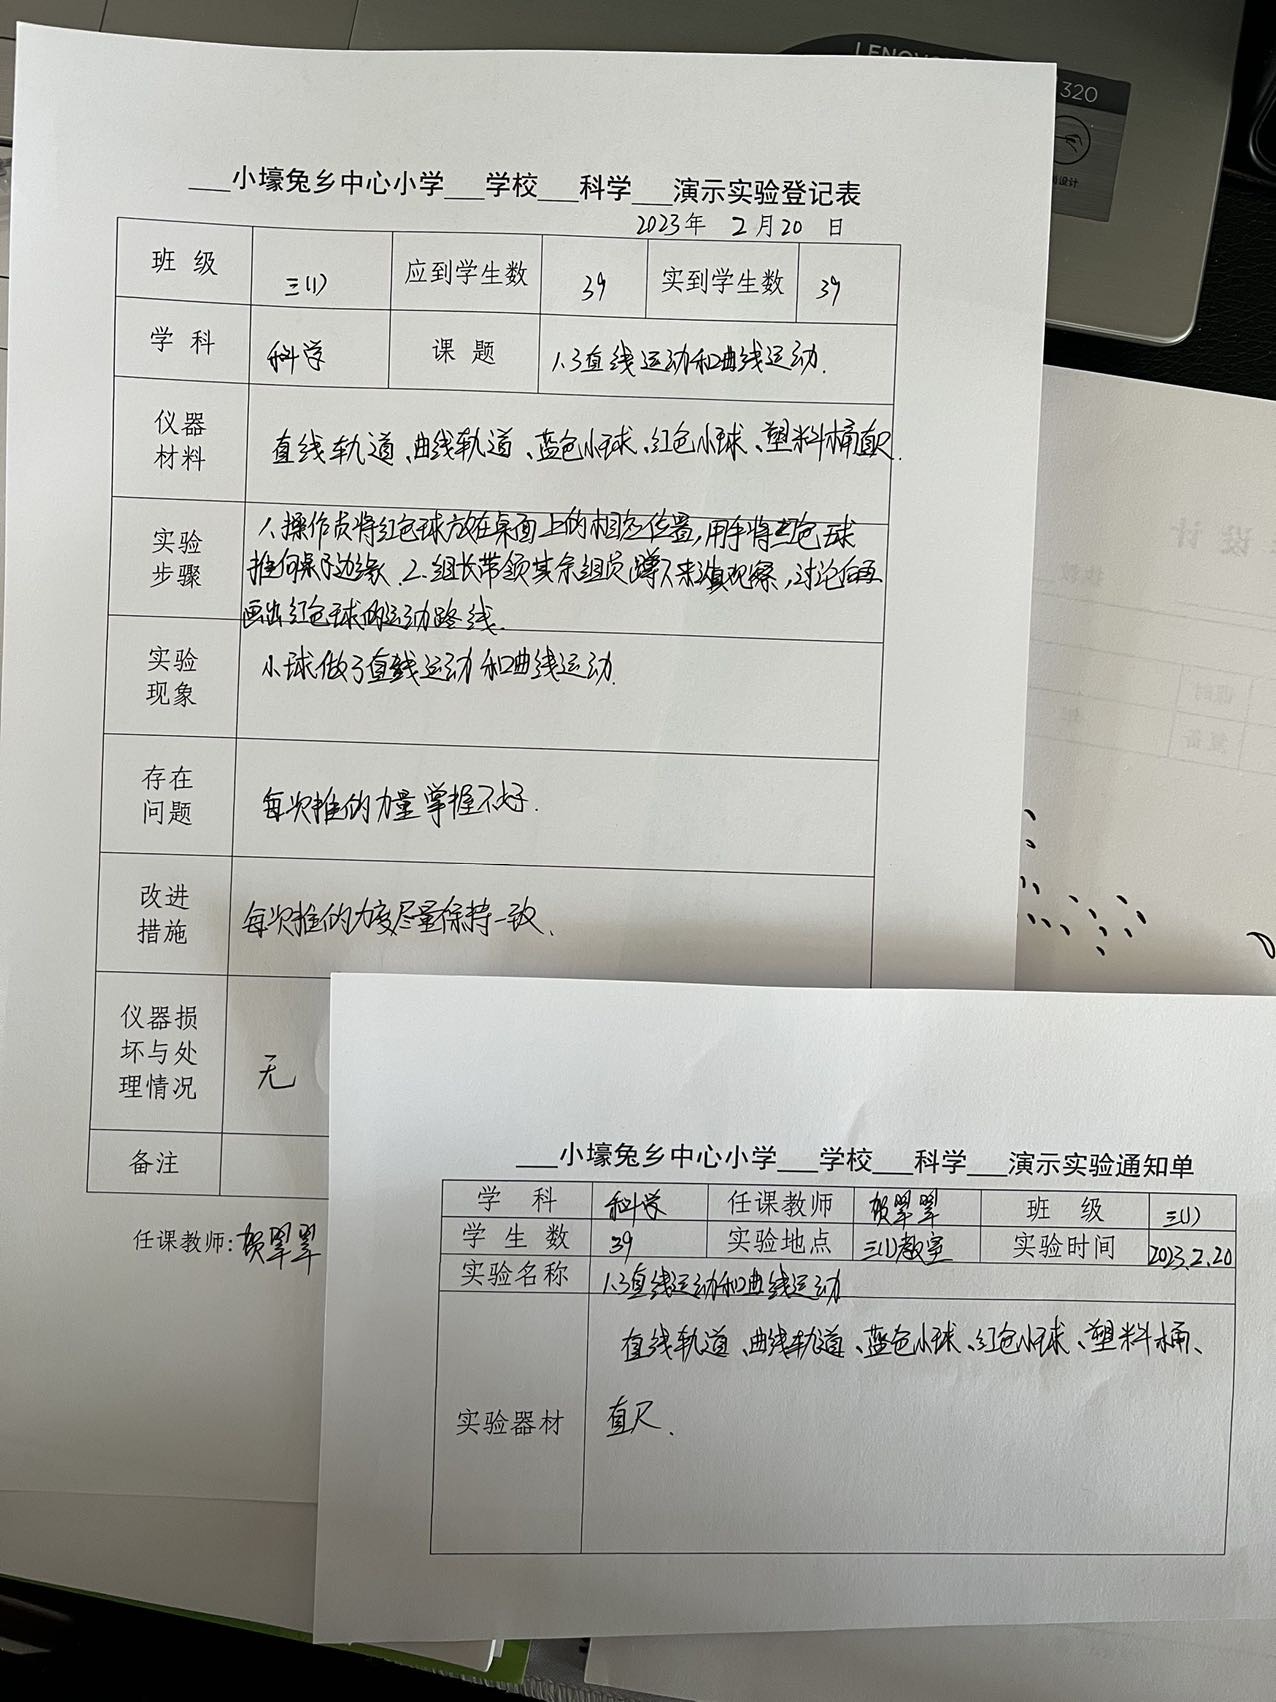 LENOVO
320
___小壕兔乡中心小学___学校___科学___演示实验登记表
2023年 2月20 日
班 级 三(1) 应到学生数 39 实到学生数 39
学 科 科学 课 题 1.3直线运动和曲线运动.
仪器
材料
直线轨道、曲线轨道、蓝色小球、红色小球、塑料桶直尺.
实验
步骤
1.操作员将红色球放在桌面上的相应位置,用手将红色球
推向桌子边缘.2.组长带领其余组员蹲下来观察,讨论后再
画出红色球的运动路线.
实验
现象
小球做了直线运动和曲线运动.
存在
问题
每次推的力量掌握不好.
改进
措施
每次推的力度尽量保持一致.
仪器损
坏与处
理情况
无
备注
任课教师:贺翠翠
___小壕兔乡中心小学___学校___科学___演示实验通知单
学 科 科学 任课教师 贺翠翠 班 级 三(1)
学 生 数 39 实验地点 三(1)教室 实验时间 2023.2.20
实验名称 1.3直线运动和曲线运动
实验器材
直线轨道、曲线轨道、蓝色小球、红色小球、塑料桶、
直尺.